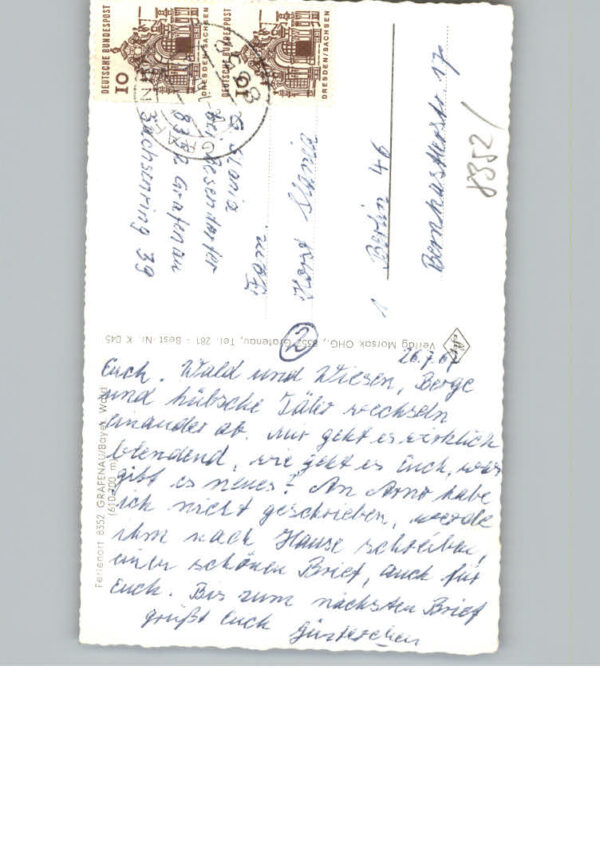 DEUTSCHE BUNDESPOST
10
DRESDEN/SACHSEN
DEUTSCHE BUNDESPOST
10
DRESDEN/SACHSEN
bei
8352 Grafenau
Sachsenring 39
Horst
1 Berlin 46
8352/
Verlag Morsak OHG., 8352 Grafenau, Tel. 281 - Best. Nr. K 045
Ferienort 8352 GRAFENAU/Bayer. Wald
(610-700 m)
2
26.7.67
Euch. Wald und Wiesen, Berge
und hübsche Täler wechseln
einander ab. Mir geht es wirklich
blendend, wie geht es Euch, was
gibt es neues? An Arno habe
ich nicht geschrieben, werde
ihm nach Hause schreiben,
einen schönen Brief, auch für
Euch. Bis zum nächsten Brief
grüßt Euch